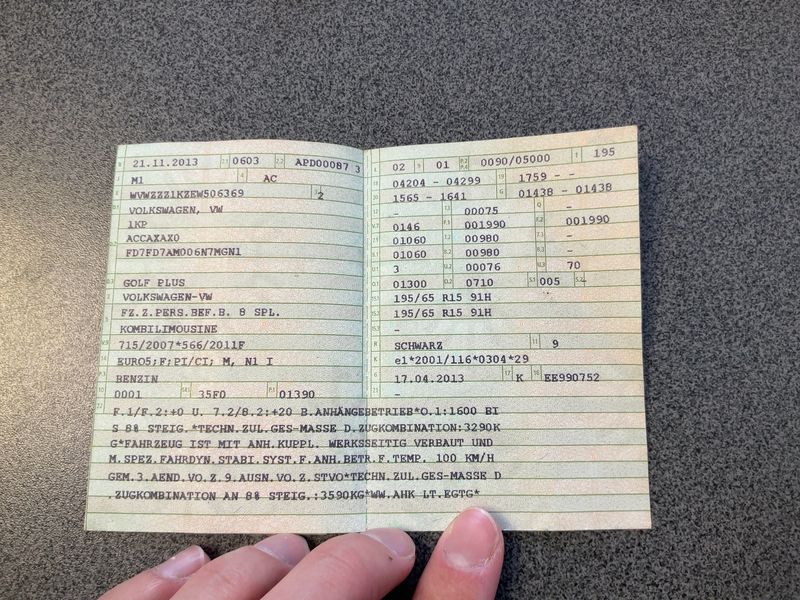 B 21.11.2013 2.1 0603 2.2 APD00087 3
J M1 4 AC
E WVWZZZ1KZEW506369 3 2
VOLKSWAGEN, VW
1KP
ACCAXAX0
FD7FD7AM006N7MGN1
GOLF PLUS
VOLKSWAGEN-VW
FZ.Z.PERS.BEF.B. 8 SPL.
KOMBILIMOUSINE
715/2007*566/2011F
EURO5;F;PI/CI; M, N1 I
BENZIN
0001 35F0 01390
L 02 9 01 P.2 P.4 0090/05000 T 195
18 04204 - 04299 19 1759 - -
20 1565 - 1641 G 01438 - 01438
12 - 13 00075 Q -
V.7 0146 F.1 001990 F.2 001990
7.1 01060 7.2 00980 7.3 -
8.1 01060 8.2 00980 8.3 -
U.1 3 U.2 00076 U.3 70
O.1 01300 O.2 0710 S.1 005 S.2 -
15.1 195/65 R15 91H
15.2 195/65 R15 91H
15.3 -
R SCHWARZ 11 9
K e1*2001/116*0304*29
6 17.04.2013 17 K 16 EE990752
21 -
F.1/F.2:+0 U. 7.2/8.2:+20 B.ANHÄNGEBETRIEB*O.1:1600 BI
S 8% STEIG.*TECHN.ZUL.GES-MASSE D.ZUGKOMBINATION:3290K
G*FAHRZEUG IST MIT ANH.KUPPL. WERKSSEITIG VERBAUT UND
M.SPEZ.FAHRDYN.STABI.SYST.F.ANH.BETR.F.TEMP. 100 KM/H
GEM.3.AEND.VO.Z.9.AUSN.VO.Z.STVO*TECHN.ZUL.GES-MASSE D
.ZUGKOMBINATION AN 8% STEIG.:3590KG*WW.AHK LT.EGTG*